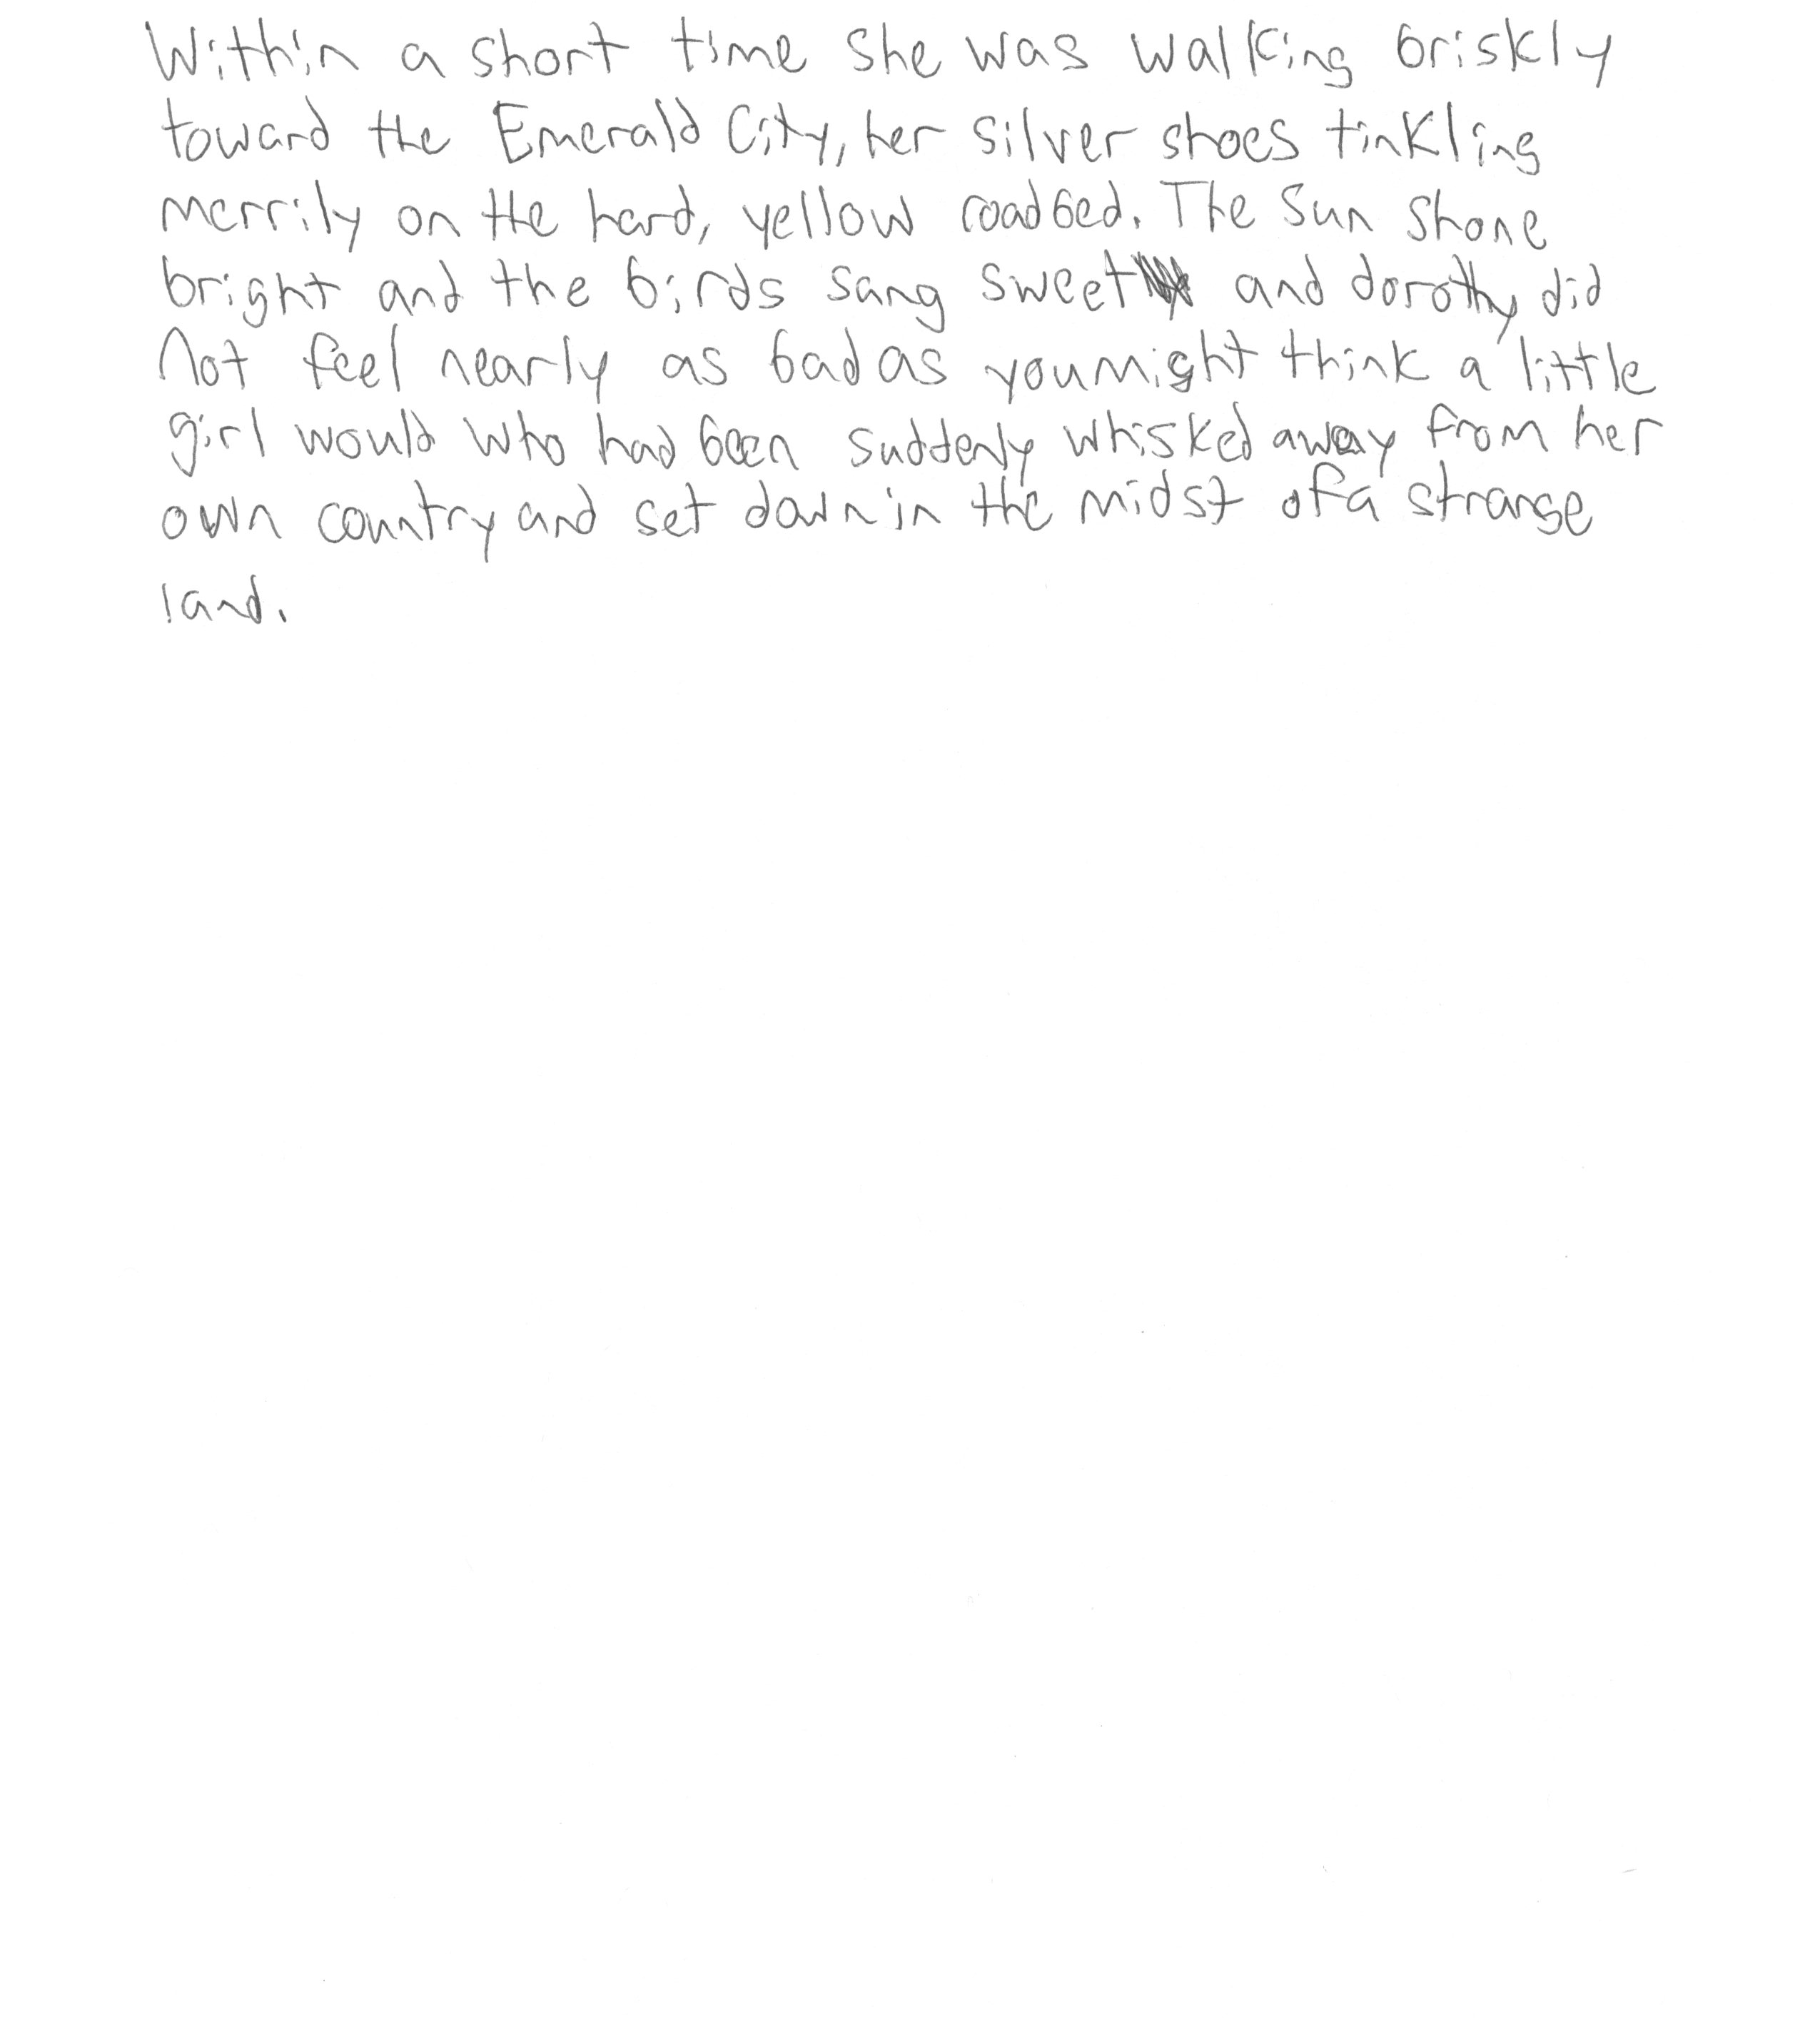 Within a short time she was walking briskly
toward the Emerald City, her silver shoes tinkling
merrily on the hard, yellow roadbed. The sun shone
bright and the birds sang sweet and dorothy did
not feel nearly as bad as you might think a little
girl would who had been suddenly whisked away from her
own country and set down in the midst of a strange
land.